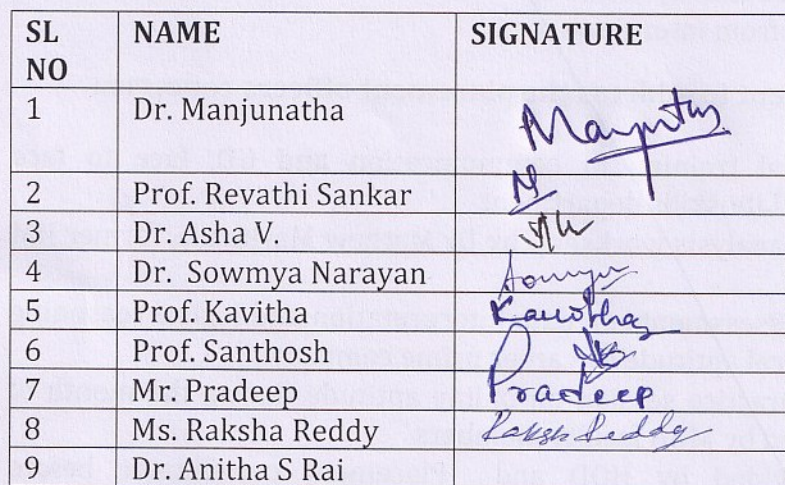 SL NO NAME SIGNATURE
1 Dr. Manjunatha
2 Prof. Revathi Sankar
3 Dr. Asha V.
4 Dr. Sowmya Narayan
5 Prof. Kavitha Kavitha
6 Prof. Santhosh
7 Mr. Pradeep Pradeep
8 Ms. Raksha Reddy Raksha Reddy
9 Dr. Anitha S Rai